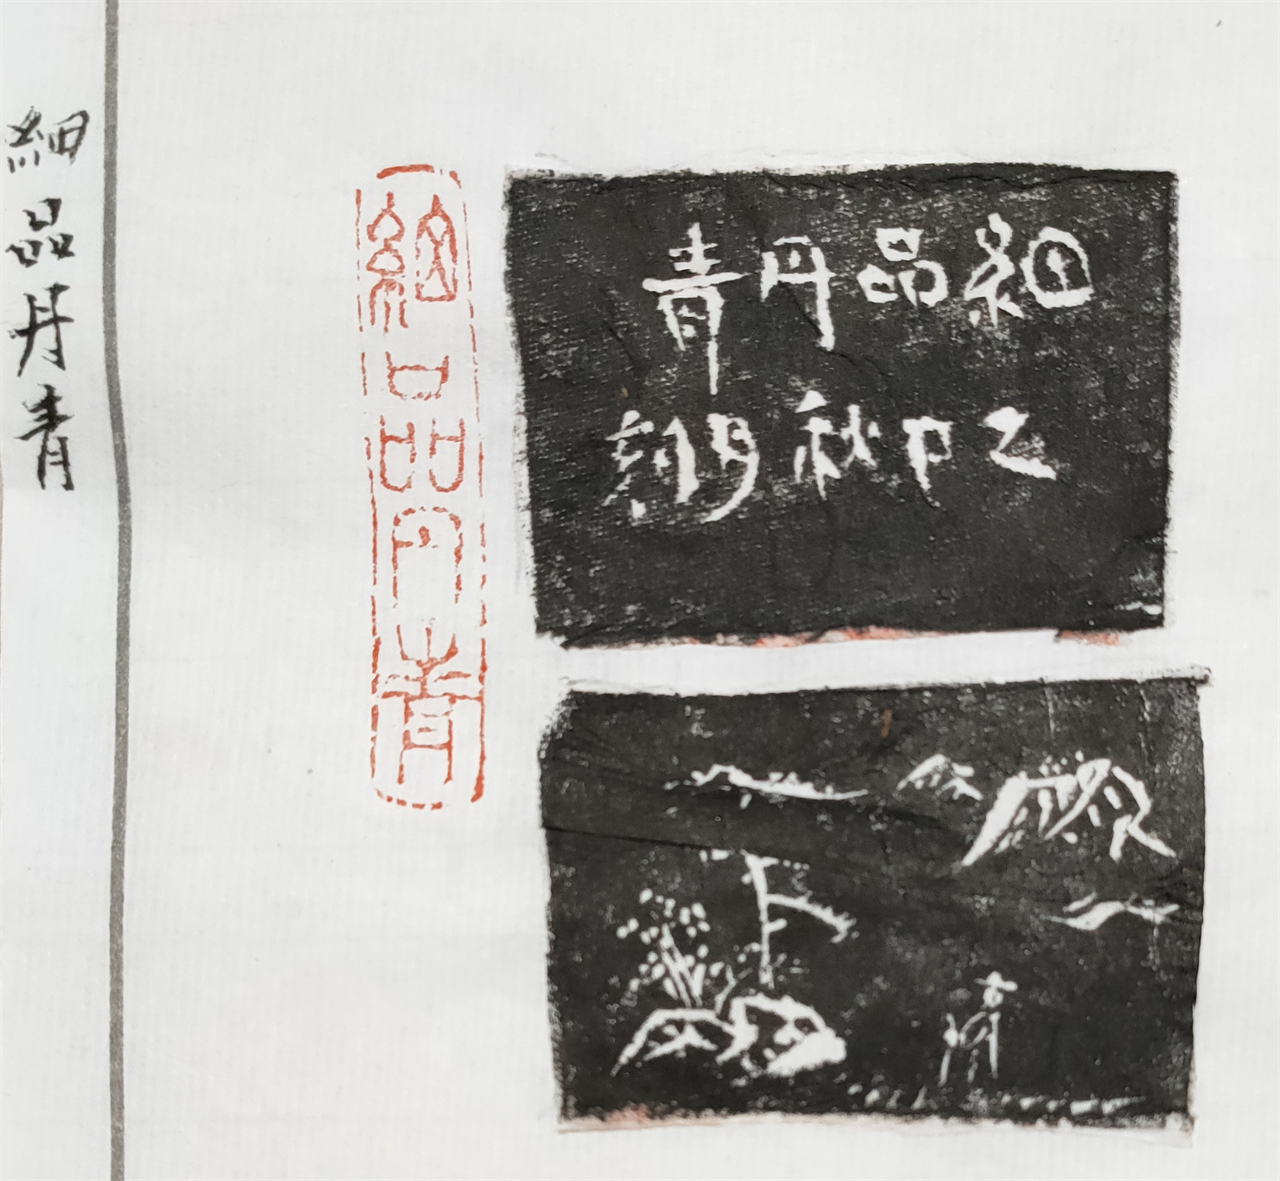 細品丹青
細品丹青
細品丹青
乙巳秋月刻